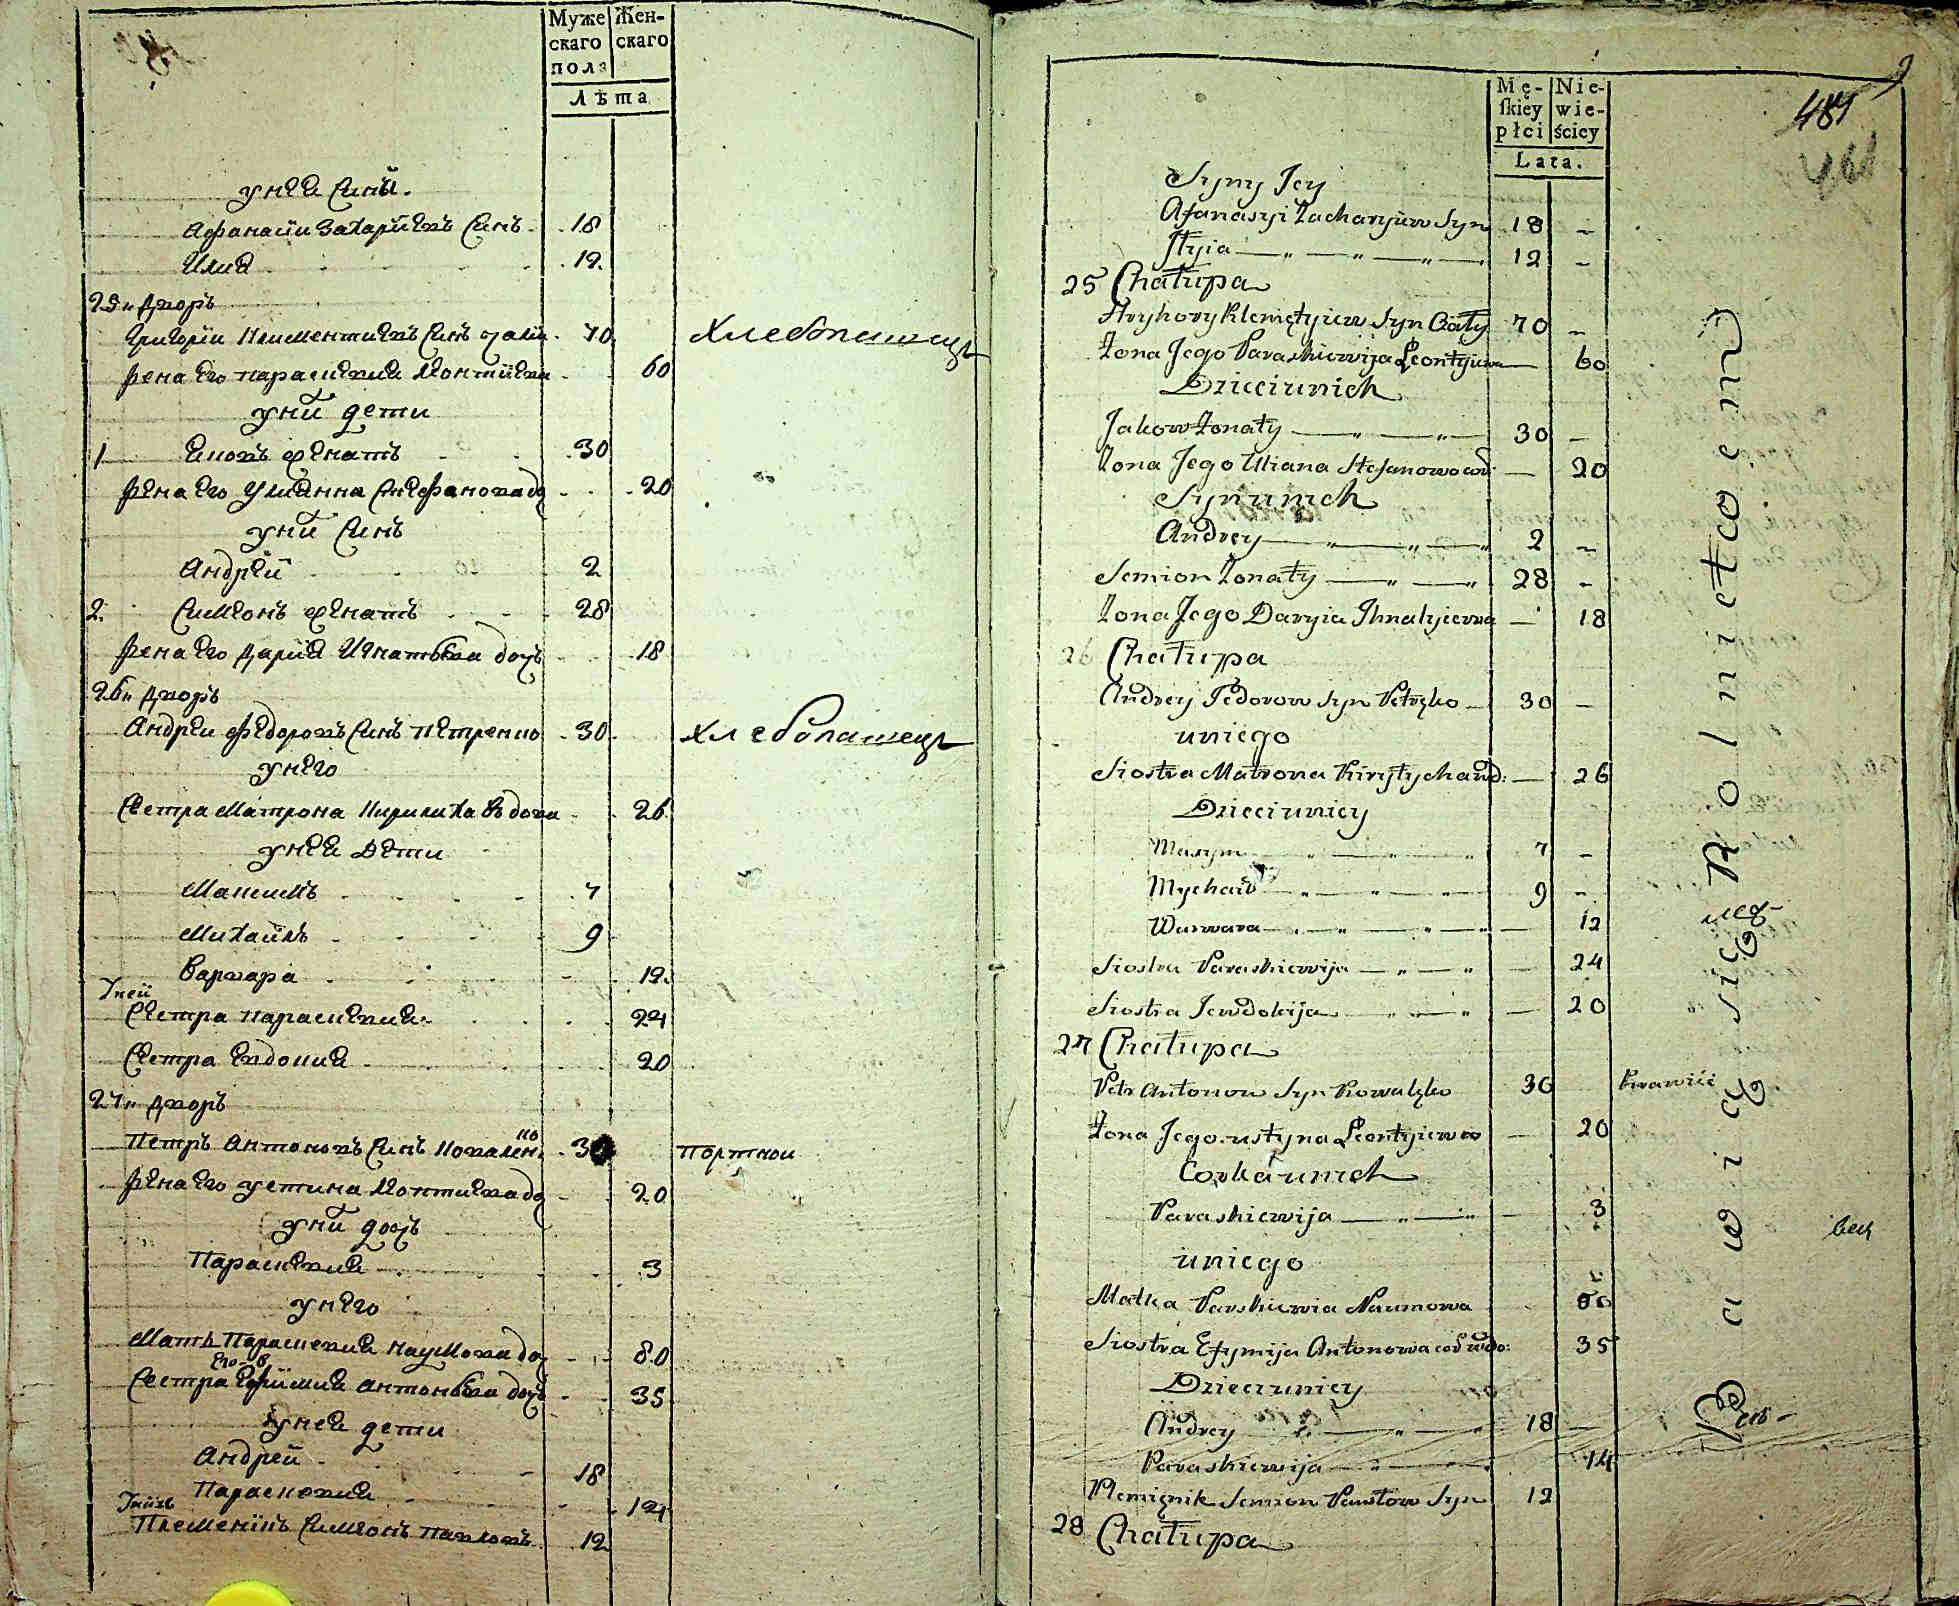 Муже Жен-
скаго скаго
пола
Лѣта
у нея сины.
Афанасии Захариевъ синъ 18
Илия 12
25 и дворъ
Григории Клементиевъ синъ 70 хлебопашецъ
жена его параскевия Леонтиева 60
у ных дети
1 Яковъ женатъ 30
жена его Улиянна Стефанова до 20
у ных синъ
Андрей 2
2. Симеонъ женатъ 28
жена его Дария Игнатьева дочъ 18
26 и дворъ
Андреи Федоровъ синъ Петренко 30 хлебопашецъ
у него
Сестра Матрона Кирилиха вдова 26
у нея дети
Максимъ 7
Михаилъ 9
Варвара 12
Сестра параскевия 24
Сестра Евдокия 20
27 и дворъ
Петръ Антоновъ синъ Ковален ко 30 портнои
жена его устина Леонтиева до 20
у ных дочъ
Параскевия 3
у него
Мать Параскевия наумова до 80
Сестра Ефимия антоньева дочъ 35
у нея дети
Андрей 18
Параскевия 14
Племенникъ Симеонъ павловъ 12
9
481
461
Mę- Nie-
skiey wie-
płci ściey
Lata.
Syny Jey
Afanasyi Zacharyiuw Syn 18 -
Iłyia 12 -
25 Chałupa
Hryhory Klemętyiuw Syn Biały 70 -
Żona Jego Paraskiewija Leontyiuwa 60
Dzieci u nich
Jakow Żonaty 30 -
Żona Jego Uliana Stefanowa cod: 20
Syn u nich
Andrey 2 -
Semion Żonaty 28 -
Żona Jego Daryia Ihnatyiewna 18
26 Chałupa
Andrey Fedorow Syn Petręko 30 -
u niego
Siostra Matrona Kiryłycha wd: 26
Dzieci u niey
Maxym 7 -
Mychaiło 9 -
Warwara 12
Siostra Paraskiewija 24
Siostra Jewdokija 20
27 Chałupa
Petr Antonow Syn Kowalęko 30 Krawiec
Żona Jego ustyna Leontyiewa 20
Corka u nich
Paraskiewija 3
u niego
Matka Parskiewia Naumowa 80
Siostra Efymija Antonowa cod wdo: 35
Dzieci u niey
Andrey 18 -
Paraskiewija 14
Plemięnik Semion Pawłow Syn 12
28 Chałupa
Bawią się Rolnictwem